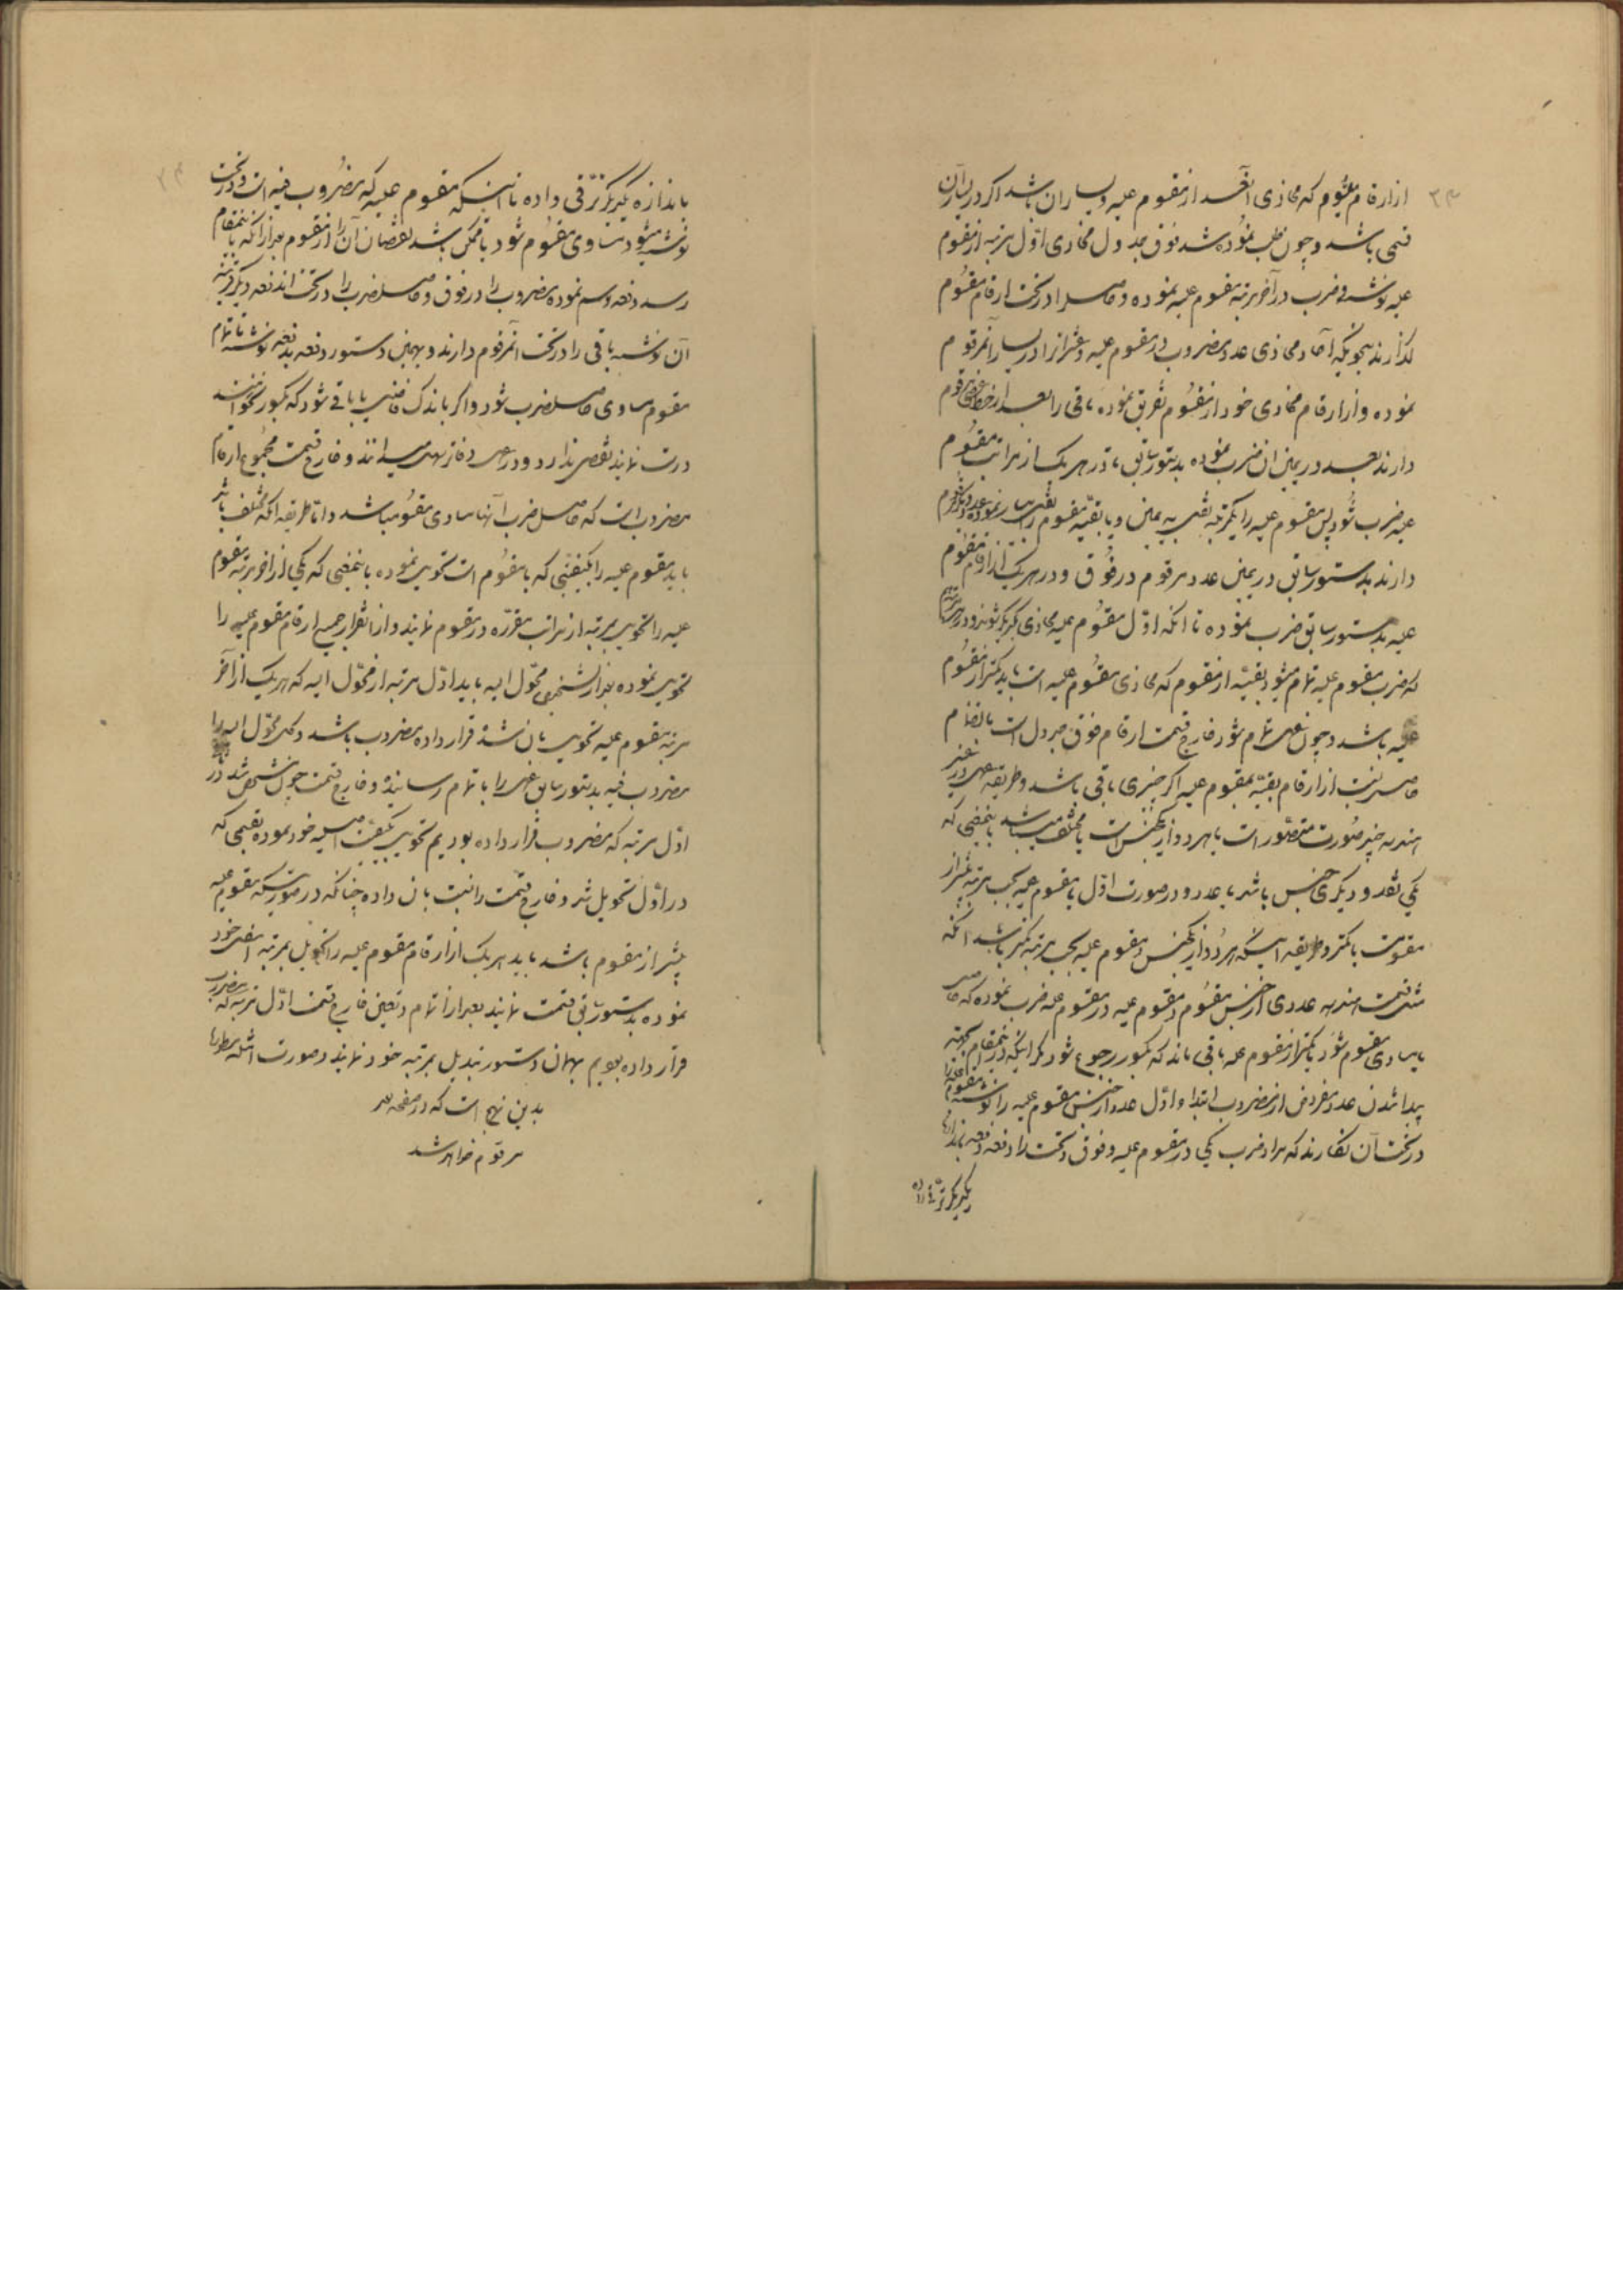 از ارقام مقسوم که محاذی آحاد از مقسوم علیه و یسار آن باشد اگر در یسار آن
قمی باشد و چون طلب نموده شد فوق جدول محاذی اول مرتبه از مقسوم
علیه نوشته ضرب در آخر مرتبه مقسوم علیه نموده و حاصل را در تحت ارقام مقسوم
گذارند بنحویکه آحاد محاذی عدد مضروب در مقسوم علیه و عشرات را در یسار آن مرقوم
نموده و از ارقام محاذی خود از مقسوم تفریق نموده باقی را بعد از خط عرضی مرقوم
دارند بعد در یمین آن ضرب نموده بدستور سابق تا در هر یک از مراتب مقسوم
علیه ضرب شود پس مقسوم علیه را یکمرتبه نقل به یمین و یا بقیه مقسوم را نقل بیسار نموده عدد دیگر مرقوم
دارند بدستور سابق در یمین عدد مرقوم در فوق و در هر یک از ارقام مقسوم
علیه بدستور سابق ضرب نموده تا آنکه اول مقسوم علیه محاذی یکدیگر شوند و در هر مرتبه
که ضرب مقسوم علیه تمام میشود بقیه از مقسوم که محاذی مقسوم علیه است باید کمتر از مقسوم
علیه باشد و چون عمل تمام شود خارج قسمت ارقام فوق جدول است بانضمام
حاصل نسبت از ارقام بقیه بمقسوم علیه اگر چیزی باقی باشد و طریقه عمل در غیر
هندسه چند صورت متصور است یا هر دو از یکجنس است یا مختلف میباشد بنحوی که
یکی نقد و دیگری جنس باشد یا عدد و در صورت اول یا مقسوم علیه بحسب مرتبه بیشتر از
مقسومست یا کمتر و طریقه اینکه هر دو از یکجنس و مقسوم علیه بحسب مرتبه کمتر باشد آنکه
مثل قسمت هندسه عددی از جنس مقسوم و مقسوم علیه در مقسوم علیه ضرب نموده که حاصل
یا مساوی مقسوم شود یا کمتر از مقسوم علیه باقی ماند که بکسور رجوع شود مگر اینکه در اینمقام بجهته
پیدا شدن عدد مفروض از مضروب ابتدا و اول عدد از جنس مقسوم علیه را نوشته مقسوم علیه را
در تحت آن نگارند که مراد ضرب یکی در مقسوم علیه و فوق و تحت را دفعه دفعه باندازه
یکدیگر ترقی داده
باندازه یکدیگر ترقی داده تا اینکه مقسوم علیه که مضروب فیه است و در تحت
نوشته میشود مساوی مقسوم شود یا ممکن باشد نقصان آن از مقسوم بعد از آنکه باینمقام
رسد دفعه رسم نموده مضروب را در فوق و حاصل ضرب را در تحت آن دفعه دیگر
آن نوشته باقی را در تحت آن مرقوم دارند و بهمین دستور دفعه بدفعه نوشته تا تمام
مقسوم مساوی حاصل ضرب شود و اگر باندک فاضلی یا باقی شود که بکسور نخواهند
درست نمایند نقصی ندارد و در عمل دفاتر بهمین میرسانند و خارج قسمت مجموع ارقام
مضروب است که حاصل ضرب آنها مساوی مقسوم میباشد و اما طریقه آنکه مختلف باشد
باید مقسوم علیه را بکیفیتی که با مقسوم است تحویل نموده بنحوی که یکی از آخر مرتبه مقسوم
علیه را تحویل بمرتبه از مراتب مقرره در مقسوم نمایند و از آنقرار جمیع ارقام مقسوم علیه را
تحویل نموده بعد از تشخیص محول الیه باید اول مرتبه از محول الیه که هر یک از آخر
مرتبه مقسوم علیه تحویل بآن شده قرار داده مضروب باشد و کل محول الیه را
مضروب فیه بدستور سابق عمل را باتمام رسانیده و خارج قسمت چون مشخص شد در
اول مرتبه که مضروب قرار داده بودیم تحویل بکیفیت اصلیه خود نموده بقسمی که
در اول تحویل شد و خارج قسمت را نسبت بآن داده چنانکه در صورتیکه مقسوم علیه
بیشتر از مقسوم باشد باید هر یک از ارقام مقسوم علیه را تحویل بمرتبه اسفل خود
نموده بدستور سابق قسمت نمایند بعد از اتمام و تعین خارج قسمت اول مرتبه که مضروب
قرار داده بودیم بهمان دستور تبدیل بمرتبه خود نمایند و صورت امثله مسطوره
بدین نهج است که در صفحه بعد
مرقوم خواهد شد